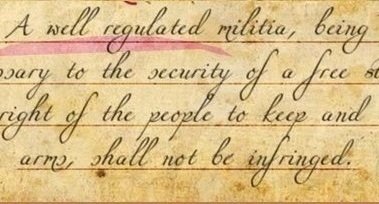 A well regulated militia, being
ssary to the security of a free st
right of the people to keep and
arms, shall not be infringed.